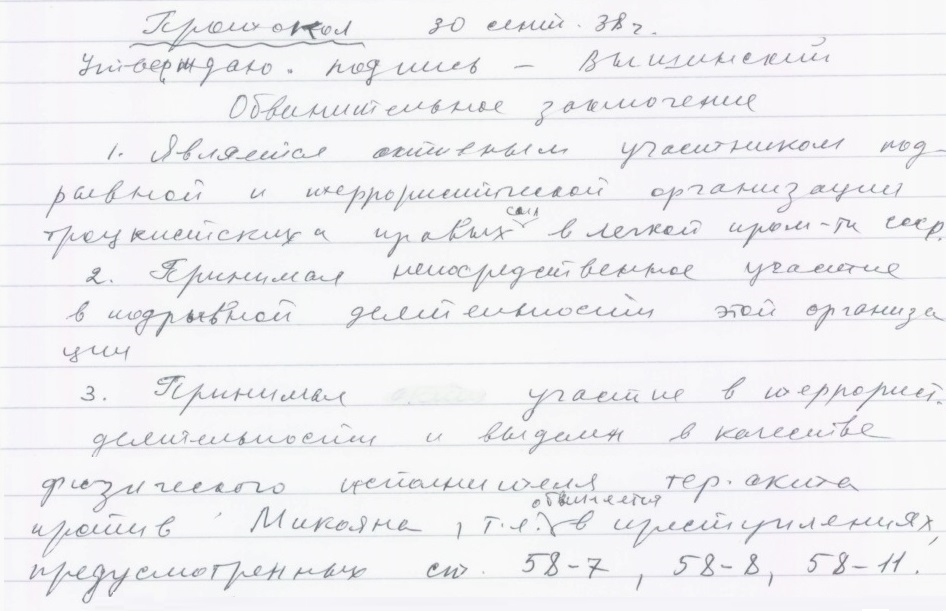 Протокол 30 сент. 38 г.
Утверждаю. подпись – Вышинский
Обвинительное заключение
1. Является активным участником под-
рывной и террористической организации
троцкистских и правых сил в легкой пром-ти ссср.
2. Принимал непосредственное участие
в подрывной деятельности этой организа
ции
3. Принимал участие в террорист.
деятельности и выделен в качестве
физического исполнителя тер. акта
против Микояна, т.е. обвиняется в преступлениях,
предусмотренных ст. 58-7, 58-8, 58-11.